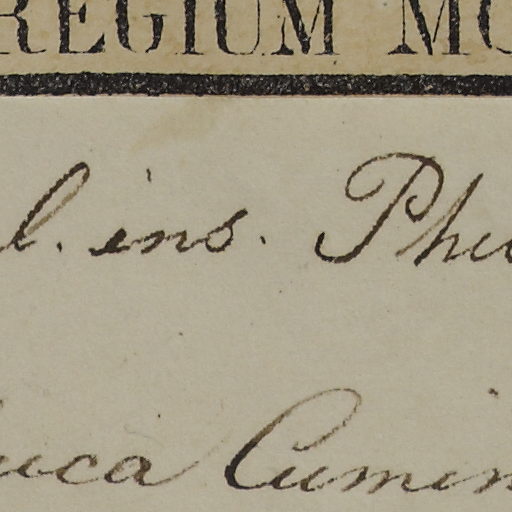 REGIUM MO
l. ins. Phi
uca Cumin